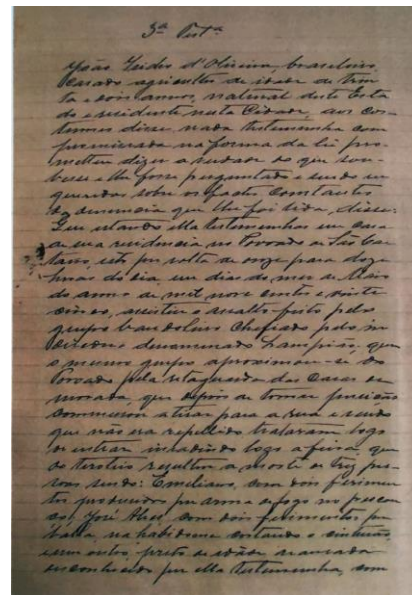 3ª Testª
João Izidro d'Oliveira, brasileiro,
casado agricultor de idade de trin
ta e dois annos, natural deste Esta
do e residente nesta Cidade, aos cos
tumes disse nada testemunha com
promissada na forma da lei pro-
metteu dizer a verdade do que sou-
besse e lhe fosse perguntado e sendo in
queridas sobre os factos constantes
da denuncia que lhe foi lida, disse:
Que estando ella testemunha em casa
de sua residencia no Povoado de São Cae
tano, isto por volta de onze para doze
horas do dia um dias do mez de Maio
do anno de mil nove centos e vinte
cinco, assistiu o assalto feito pelo
grupo bandoleiro chefiado pelo in
dividuo denominado Lampião, que
o mesmo grupo aproximou-se do
Povoado pela retaguarda das Casas de
morada, que depois de tomar posição
commeçou a atirar para a rua e vendo
que não era repellido trataram logo
de entrar invadindo logo a feira, que
os tiroteio resultou a morte de trez pes
soas sendo: Emiliano, com dois ferimen
tos produzidos por arma de fogo no pesco
ço, José Alves com dois ferimentos por
balla, na
e um outro, preto de idade avançada
desconhecido por ella testemunha, com